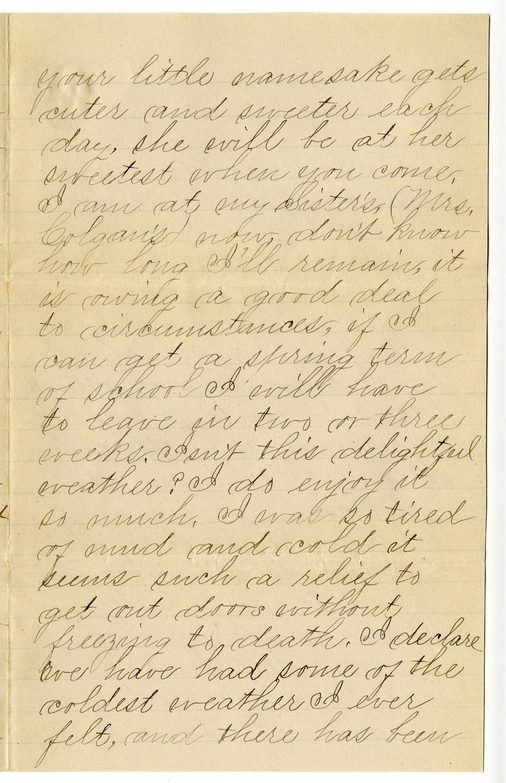 your little namesake gets
cuter and sweeter each
day, she will be at her
sweetest when you come.
I am at my sister's, (Mrs.
Colgan's) now, don't know
how long I'll remain, it
is owing a good deal
to circumstances, if I
can get a spring term
of school I will have
to leave in two or three
weeks. Isn't this delightful
weather? I do enjoy it
so much. I was so tired
of mud and cold it
seems such a relief to
get out doors without
freezing to death. I declare
we have had some of the
coldest weather I ever
felt, and there has been